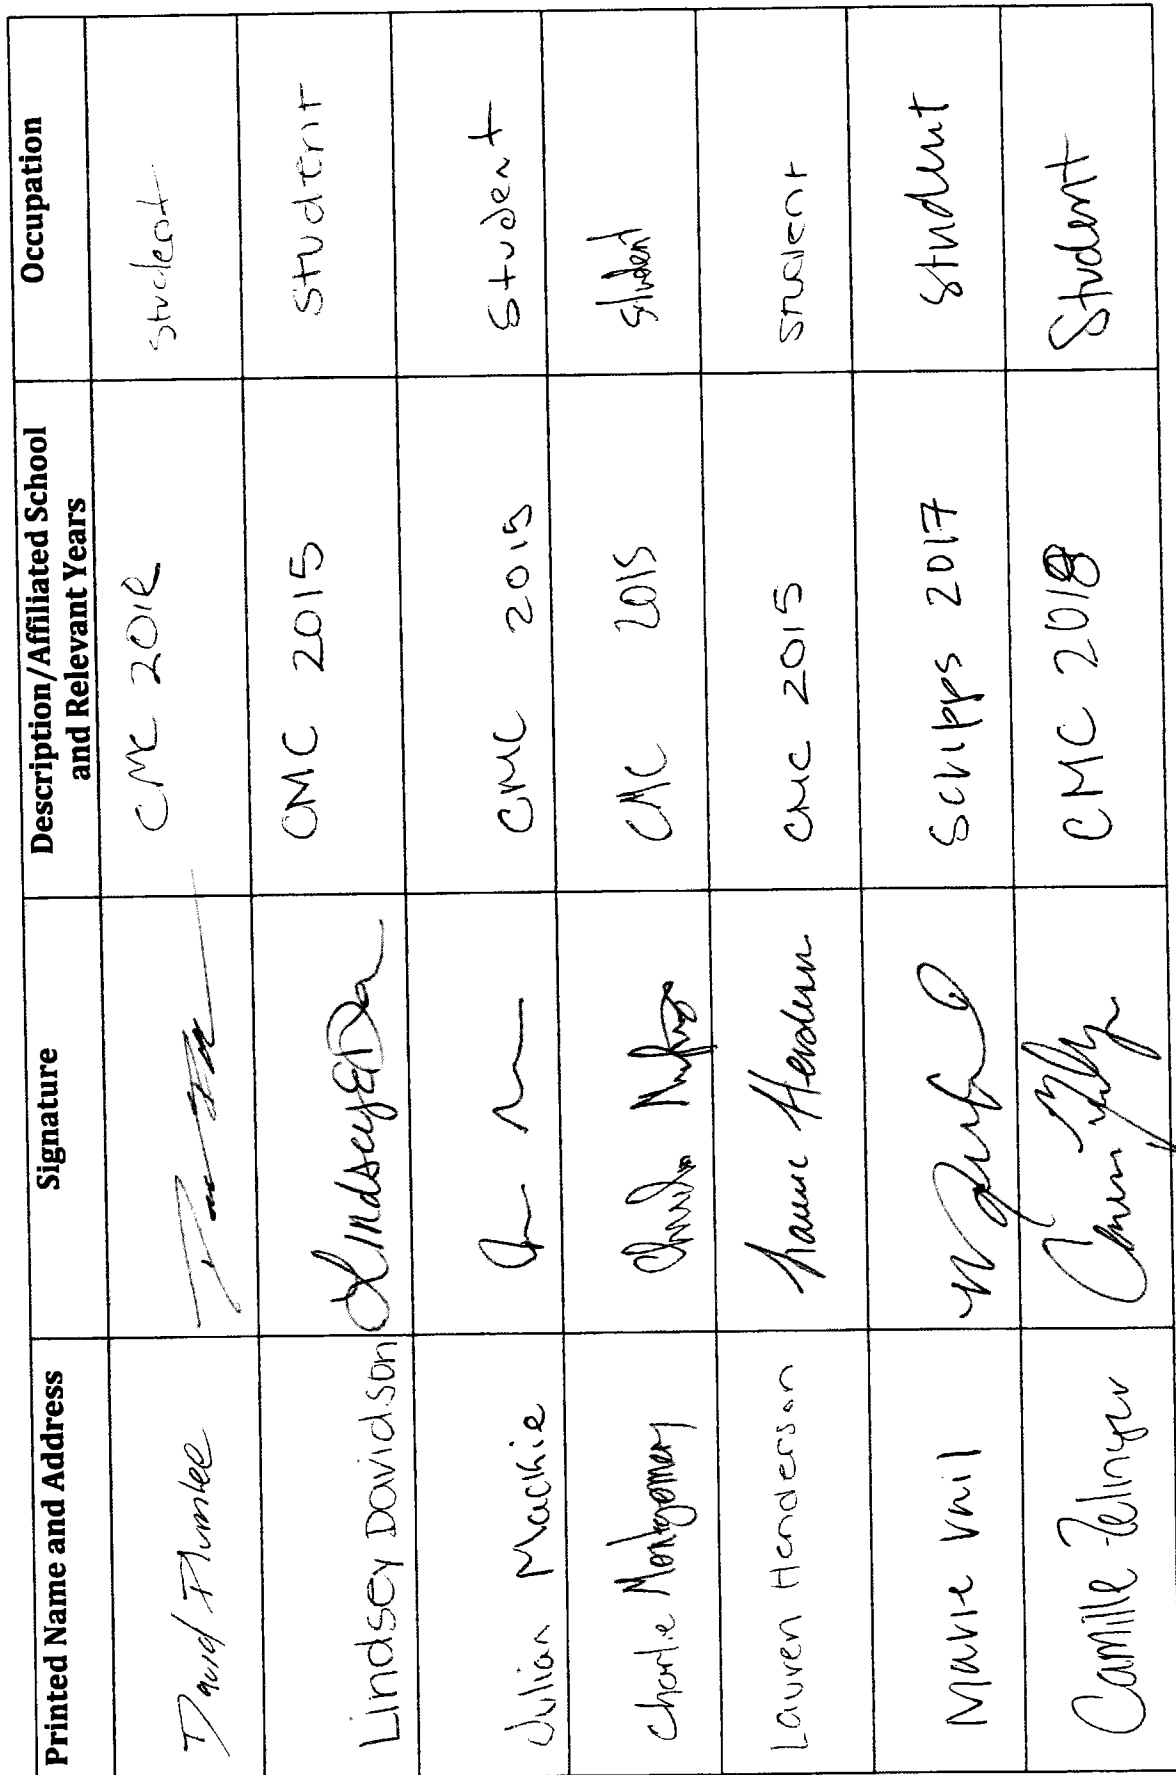 Printed Name and Address Signature Description/Affiliated School and Relevant Years Occupation
David Plumlee CMC student
Lindsey Davidson CMC 2015 Student
Julian Mackie CMC 2015 Student
Charlie Montgomery CMC 2015 Student
Lauren Henderson CMC 2015 Student
Marie Vail Scripps 2017 Student
Camille CMC 2018 Student